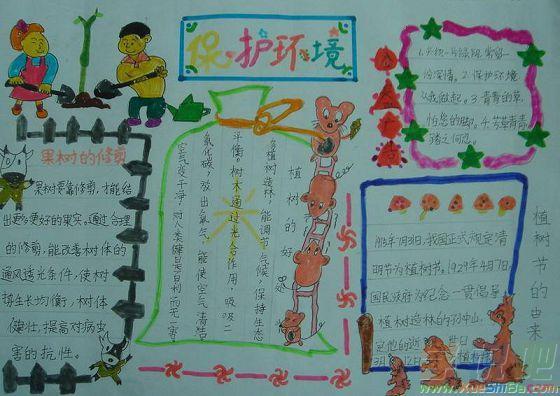 保护环境
果树的修剪
果树要靠修剪,才能结
出更多更好的果实。通过合理
的修剪,能改善树体的
通风透光条件,使树
势生长均衡,树体
健壮,提高对病虫
害的抗性。
植树的好处
多植树造林,能调节气候,保持生态
平衡,树木通过光合作用,吸收二
氧化碳,放出氧气,能使空气清洁
空气变干净,对人类健是百利而无一害
份深情。2.保护环境
从我做起。3.青青的草,
怕您的脚。4.芳草青青
踏之何忍。
植树节的由来
我国正式规定清
明节为植树节。1929年4月7日
国民政府为纪念一贯倡导
植树造林的孙中山
www.XueShiBa.com